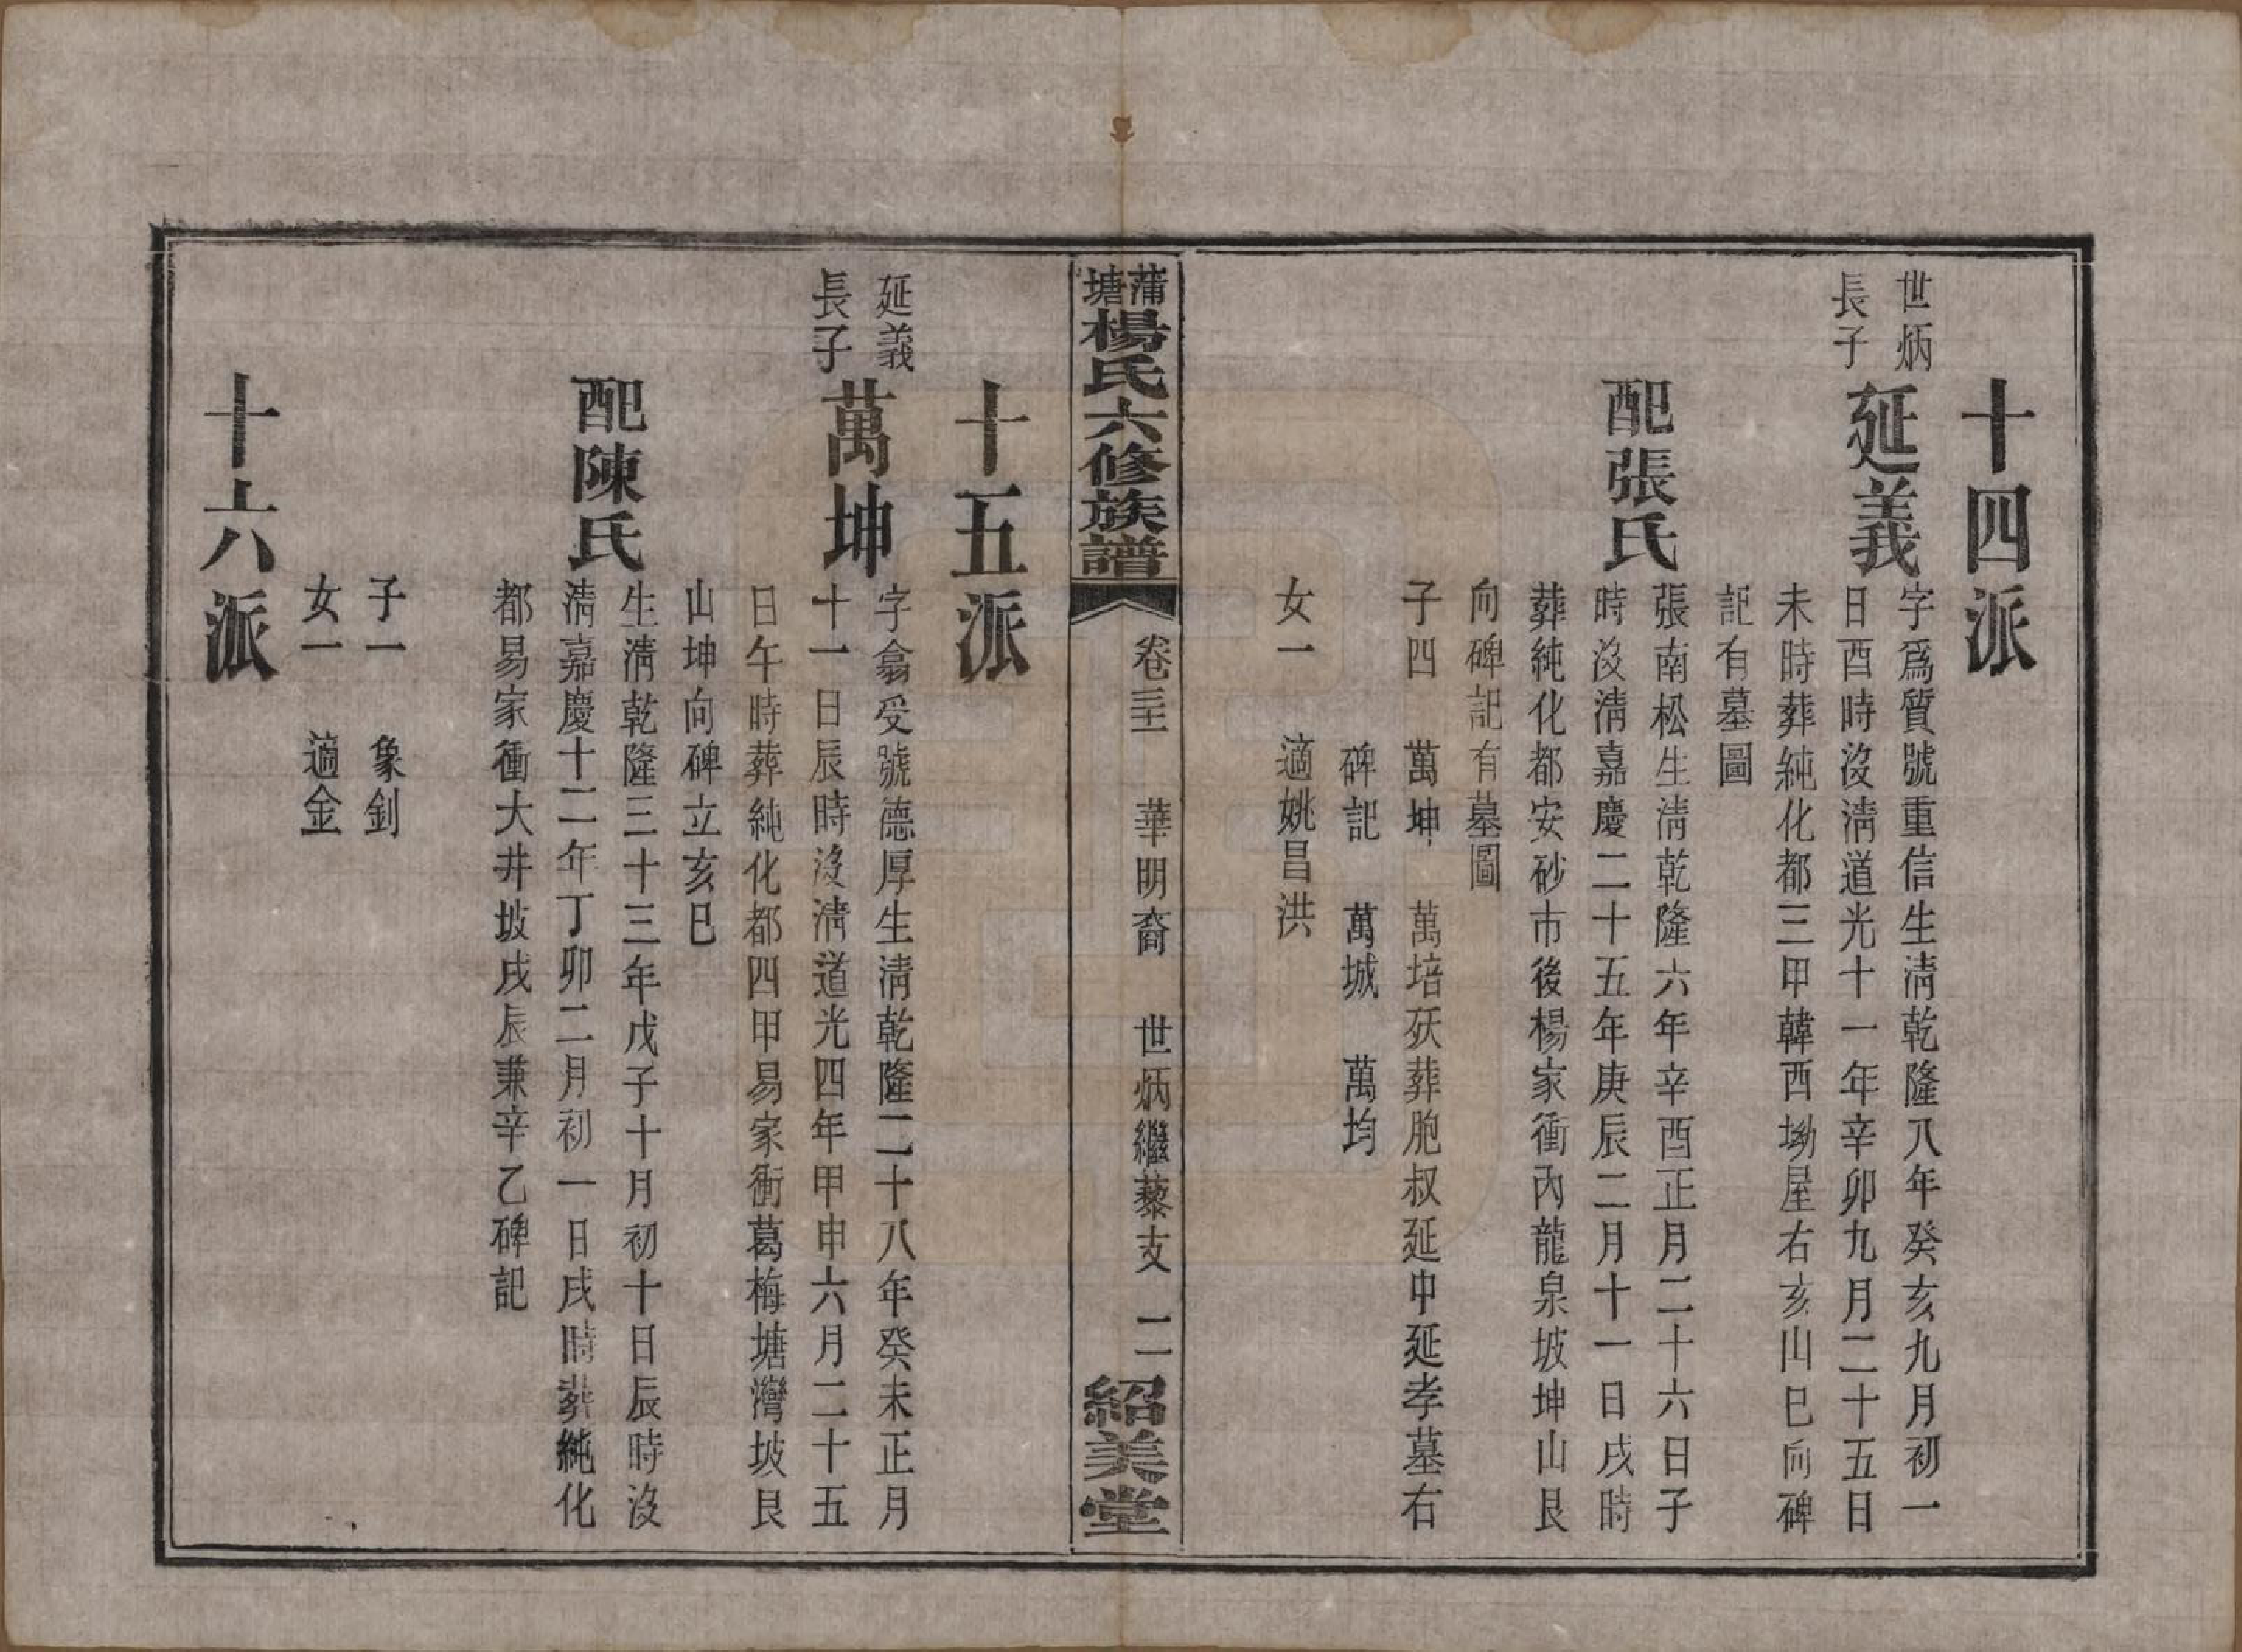 十四派
世炳
長子
延義
字爲質號重信生清乾隆八年癸亥九月初一
日酉時沒清道光十一年辛卯九月二十五日
未時葬純化都三甲韓西坳屋右亥山巳向碑
記有墓圖
配張氏
張南松生清乾隆六年辛酉正月二十六日子
時沒清嘉慶二十五年庚辰二月十一日戌時
葬純化都安砂市後楊家衝內龍泉坡坤山艮
向碑記有墓圖
子四 萬坤 萬培 歿葬胞叔延申延孝墓右
碑記 萬城 萬均
女一 適姚昌洪
蒲塘楊氏六修族譜 卷三 華明裔 世炳繼藜支 二 紹美堂
十五派
延義
長子
萬坤
字翕受號德厚生清乾隆二十八年癸未正月
十一日辰時沒清道光四年甲申六月二十五
日午時葬純化都四甲易家衝葛梅塘灣坡艮
山坤向碑立亥巳
配陳氏
生清乾隆三十三年戊子十月初十日辰時沒
清嘉慶十二年丁卯二月初一日戌時葬純化
都易家衝大井坡戌辰兼辛乙碑記
子一 象釗
女一 適金
十六派